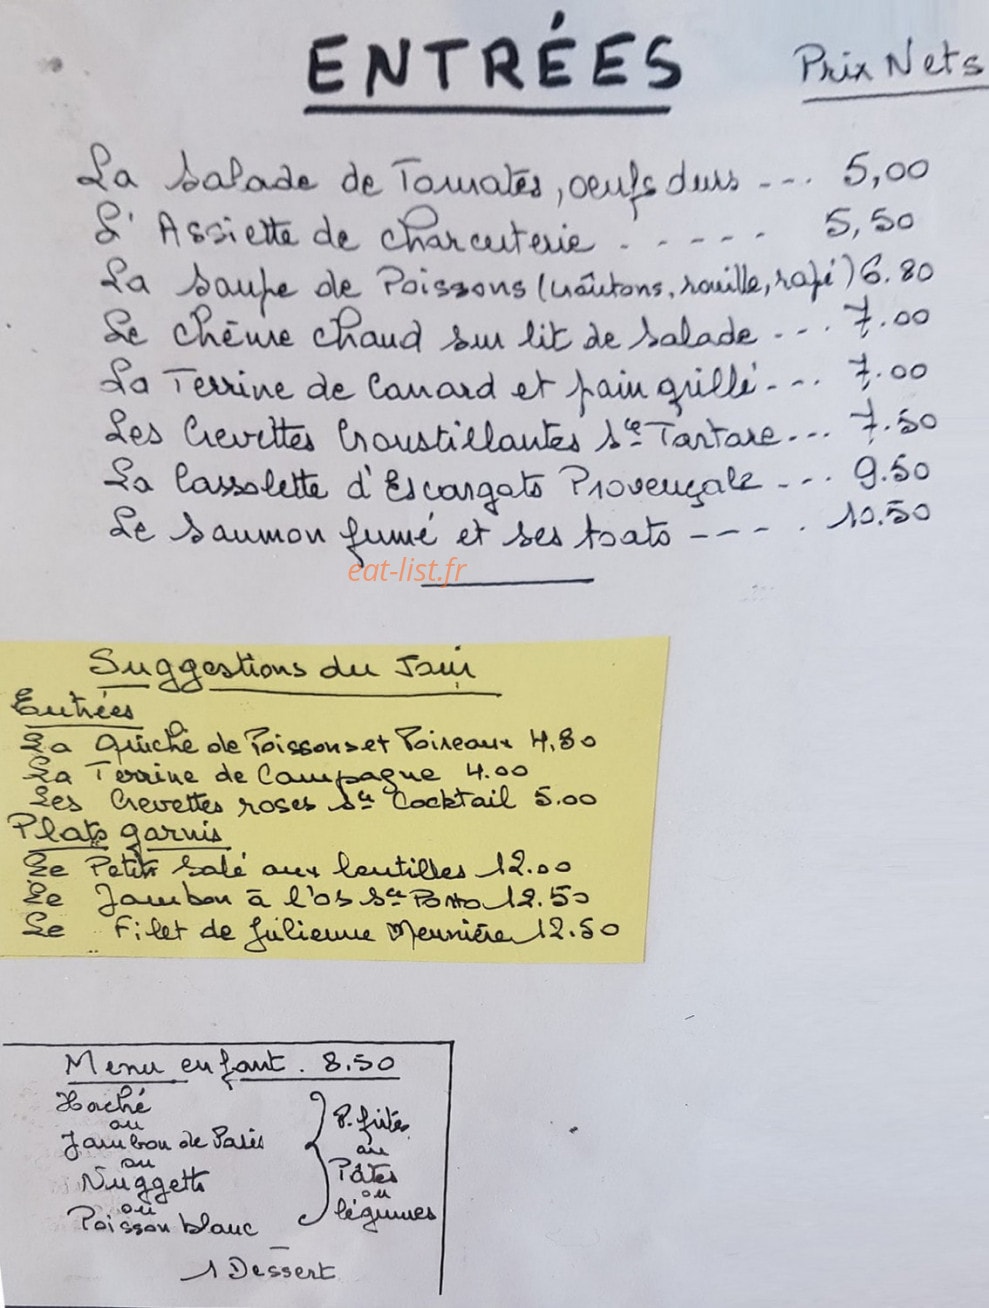 ENTRÉES
Prix Nets
La Salade de Tomates, oeufs durs --- 5,00
L'Assiette de charcuterie . - - - - - 5,50
La Soupe de Poissons (croûtons, rouille, rapé) 6.80
Le Chèvre chaud sur lit de Salade --- 7.00
La Terrine de Canard et pain grillé --- 7.00
Les Crevettes Croustillantes Sce Tartare --- 7.50
La Cassolette d'Escargots Provençale --- 9.50
Le Saumon fumé et ses toats ---- . 10.50
eat-list.fr
Suggestions du Jour
Entrées
La Quiche de Poissons et Poireaux 4,80
La Terrine de Campagne 4.00
Les Crevettes roses Sce Cocktail 5.00
Plats garnis
Le Petit Salé aux lentilles 12.00
Le Jambon à l'os Sce Porto 12.50
Le Filet de Julienne Meunière 12.50
Menu enfant . 8.50
Haché
ou
Jambon de Paris
ou
Nuggetts
ou
Poisson blanc
P. frites
ou
Pâtes
ou
légumes
1 Dessert